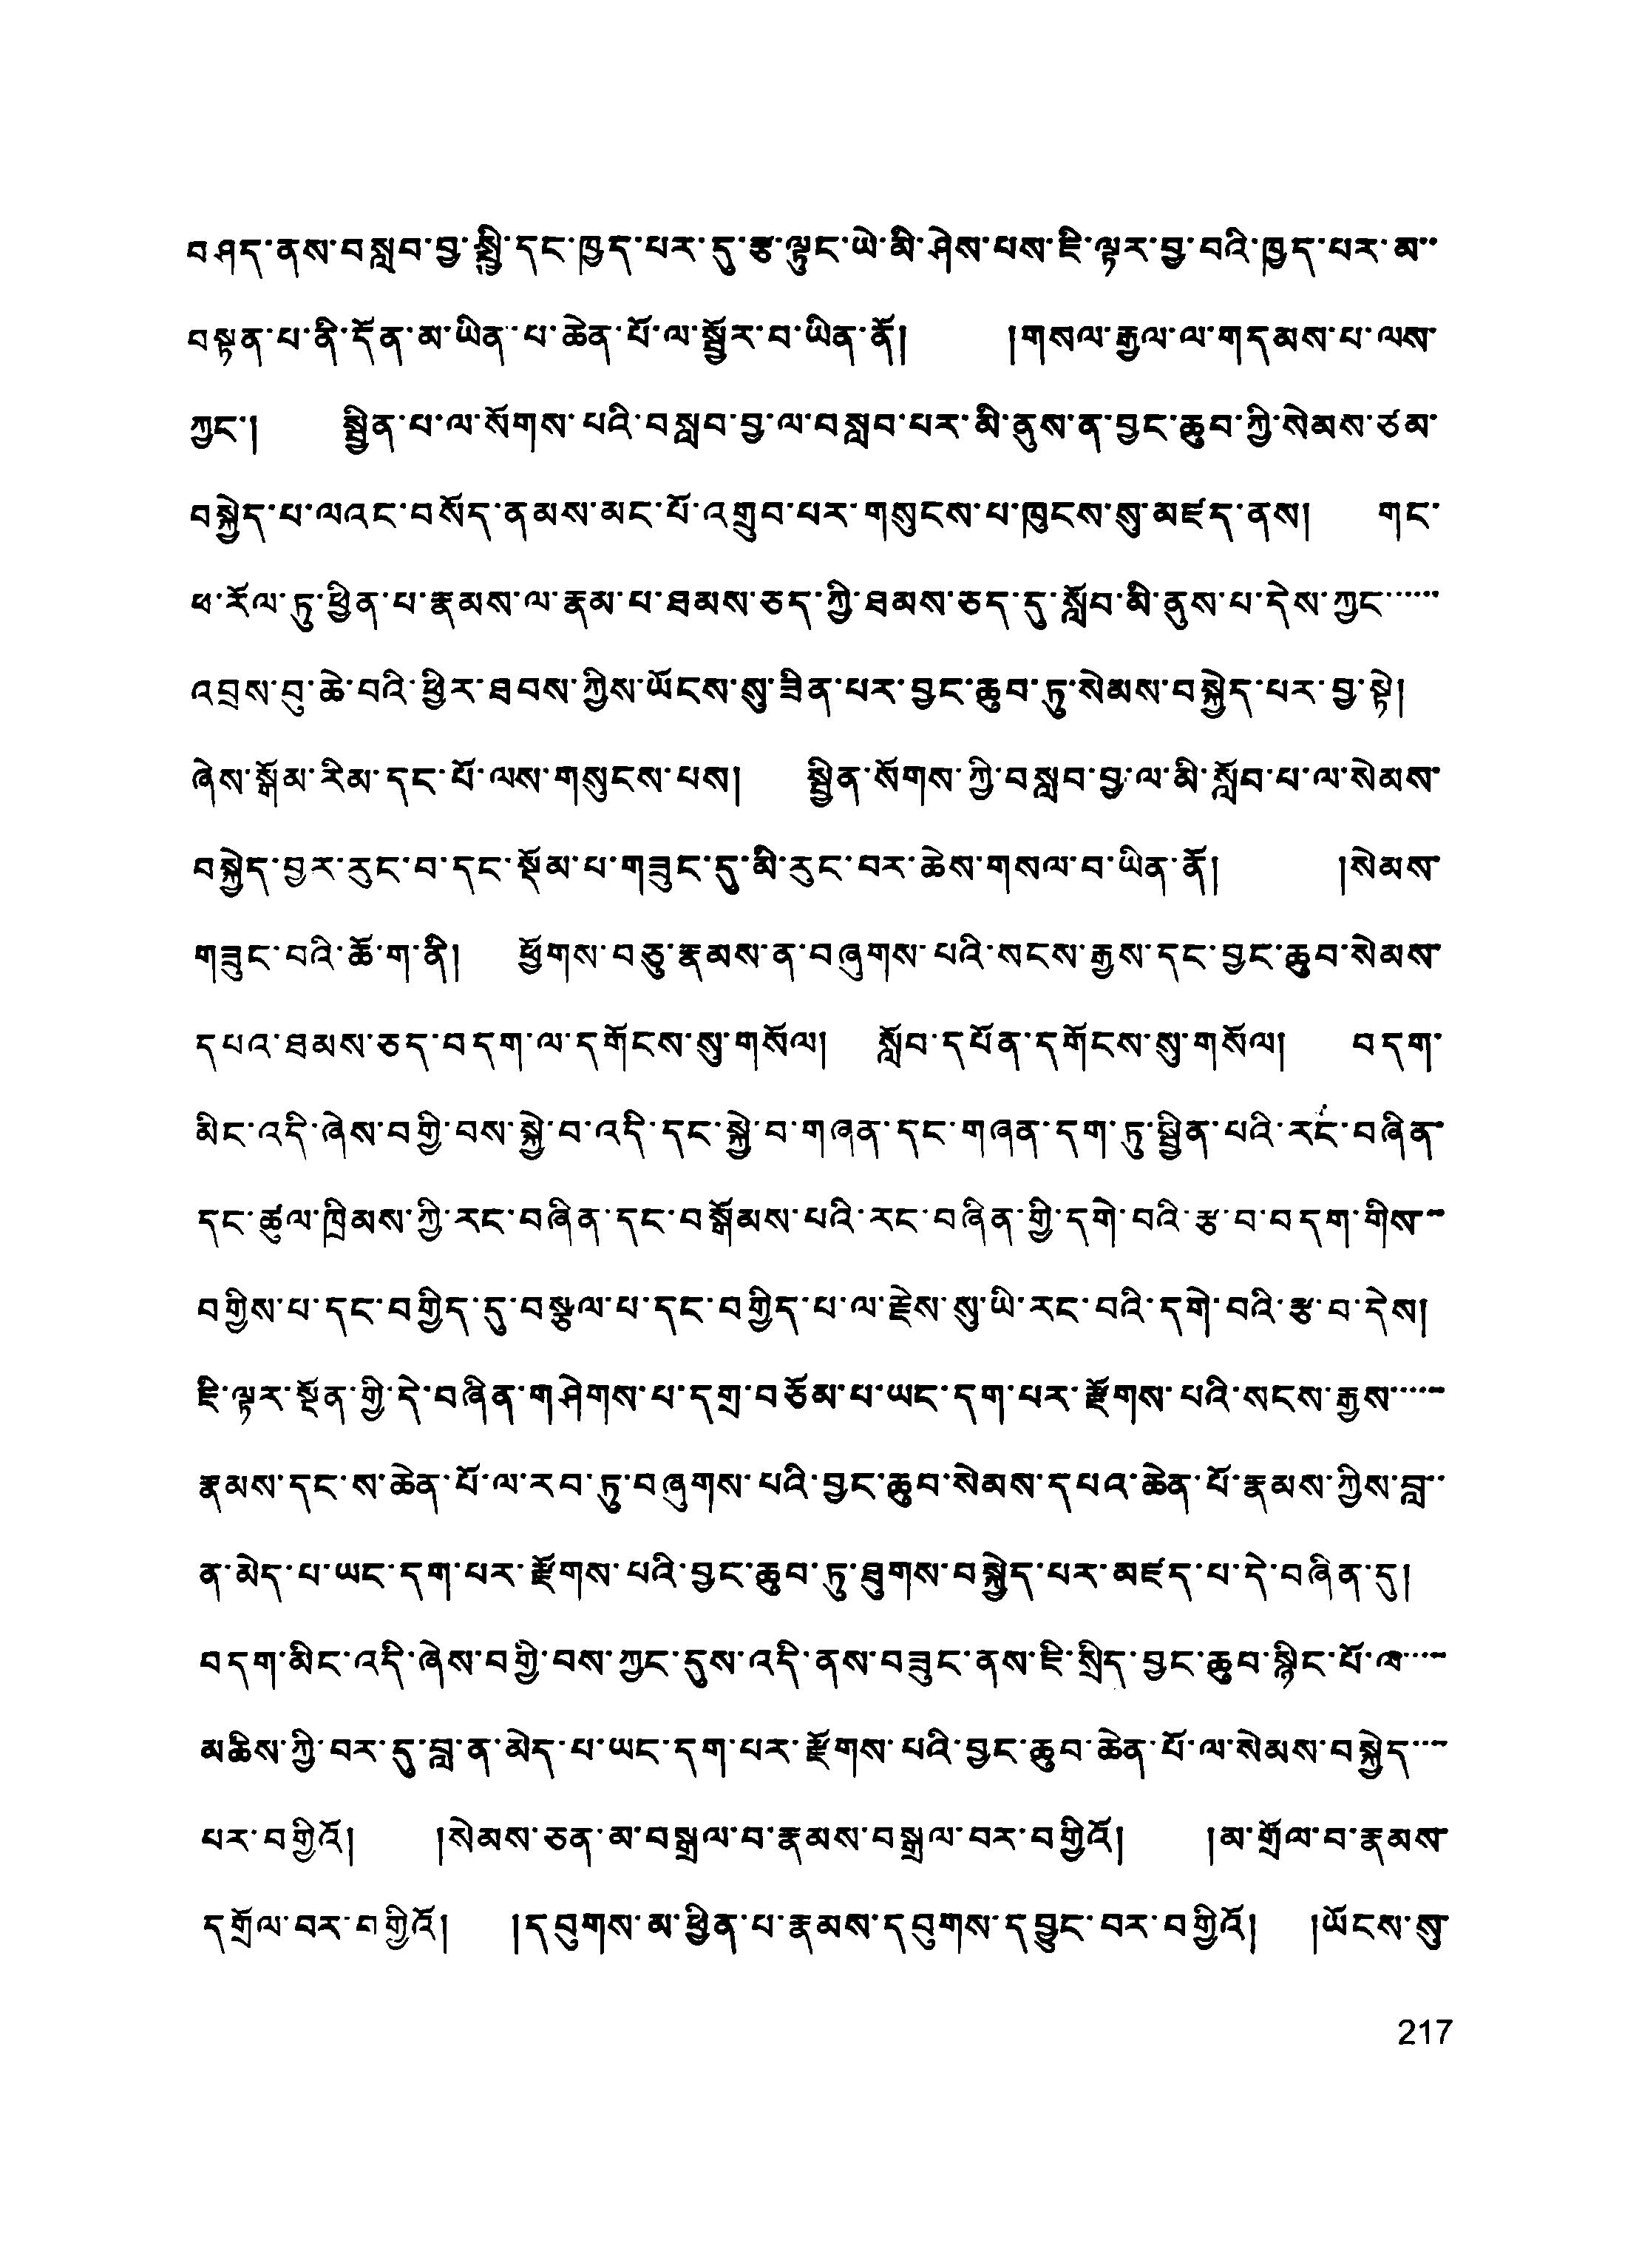 བཤད་ནས་བསླབ་བྱ་སྤྱི་དང་ཁྱད་པར་དུ་རྩ་ལྟུང་ཡེ་མི་ཤེས་པས་ཇི་ལྟར་བྱ་བའི་ཁྱད་པར་མ་་
བསྟན་པ་ནི་དོན་མ་ཡིན་པ་ཆེན་པོ་ལ་སྦྱོར་བ་ཡིན་ནོ། །གསལ་རྒྱལ་ལ་གདམས་པ་ལས་
ཀྱང་། སྦྱིན་པ་ལ་སོགས་པའི་བསླབ་བྱ་ལ་བསླབ་པར་མི་ནུས་ན་བྱང་ཆུབ་ཀྱི་སེམས་ཙམ་
བསྐྱེད་པ་ལའང་བསོད་ནམས་མང་པོ་འགྲུབ་པར་གསུངས་པ་ཁུངས་སུ་མཛད་ནས། གང་
ཕ་རོལ་ཏུ་ཕྱིན་པ་རྣམས་ལ་རྣམ་པ་ཐམས་ཅད་ཀྱི་ཐམས་ཅད་དུ་སློབ་མི་ནུས་པ་དེས་ཀྱང་་་་་་
འབྲས་བུ་ཆེ་བའི་ཕྱིར་ཐབས་ཀྱིས་ཡོངས་སུ་ཟིན་པར་བྱང་ཆུབ་ཏུ་སེམས་བསྐྱེད་པར་བྱ་སྟེ།
ཞེས་སྒོམ་རིམ་དང་པོ་ལས་གསུངས་པས། སྦྱིན་སོགས་ཀྱི་བསླབ་བྱ་ལ་མི་སློབ་པ་ལ་སེམས་
བསྐྱེད་བྱར་རུང་བ་དང་སྡོམ་པ་གཟུང་དུ་མི་རུང་བར་ཆེས་གསལ་བ་ཡིན་ནོ། །སེམས་
གཟུང་བའི་ཆོ་ག་ནི། ཕྱོགས་བཅུ་རྣམས་ན་བཞུགས་པའི་སངས་རྒྱས་དང་བྱང་ཆུབ་སེམས་
དཔའ་ཐམས་ཅད་བདག་ལ་དགོངས་སུ་གསོལ། སློབ་དཔོན་དགོངས་སུ་གསོལ། བདག་
མིང་འདི་ཞེས་བགྱི་བས་སྐྱེ་བ་འདི་དང་སྐྱེ་བ་གཞན་དང་གཞན་དག་ཏུ་སྦྱིན་པའི་རང་བཞིན་
དང་ཚུལ་ཁྲིམས་ཀྱི་རང་བཞིན་དང་བསྒོམས་པའི་རང་བཞིན་གྱི་དགེ་བའི་རྩ་བ་བདག་གིས་་
བགྱིས་པ་དང་བགྱིད་དུ་བསྩལ་པ་དང་བགྱིད་པ་ལ་རྗེས་སུ་ཡི་རང་བའི་དགེ་བའི་རྩ་བ་དེས།
ཇི་ལྟར་སྔོན་གྱི་དེ་བཞིན་གཤེགས་པ་དགྲ་བཅོམ་པ་ཡང་དག་པར་རྫོགས་པའི་སངས་རྒྱས་་་་་
རྣམས་དང་ས་ཆེན་པོ་ལ་རབ་ཏུ་བཞུགས་པའི་བྱང་ཆུབ་སེམས་དཔའ་ཆེན་པོ་རྣམས་ཀྱིས་བླ་་
ན་མེད་པ་ཡང་དག་པར་རྫོགས་པའི་བྱང་ཆུབ་ཏུ་ཐུགས་བསྐྱེད་པར་མཛད་པ་དེ་བཞིན་དུ།
བདག་མིང་འདི་ཞེས་བགྱི་བས་ཀྱང་དུས་འདི་ནས་བཟུང་ནས་ཇི་སྲིད་བྱང་ཆུབ་སྙིང་པོ་ལ་་་་་
མཆིས་ཀྱི་བར་དུ་བླ་ན་མེད་པ་ཡང་དག་པར་རྫོགས་པའི་བྱང་ཆུབ་ཆེན་པོ་ལ་སེམས་བསྐྱེད་་་
པར་བགྱིའོ། །སེམས་ཅན་མ་བསྒྲལ་བ་རྣམས་བསྒྲལ་བར་བགྱིའོ། །མ་གྲོལ་བ་རྣམས་
དགྲོལ་བར་བགྱིའོ། །དབུགས་མ་ཕྱིན་པ་རྣམས་དབུགས་དབྱུང་བར་བགྱིའོ། །ཡོངས་སུ་
217